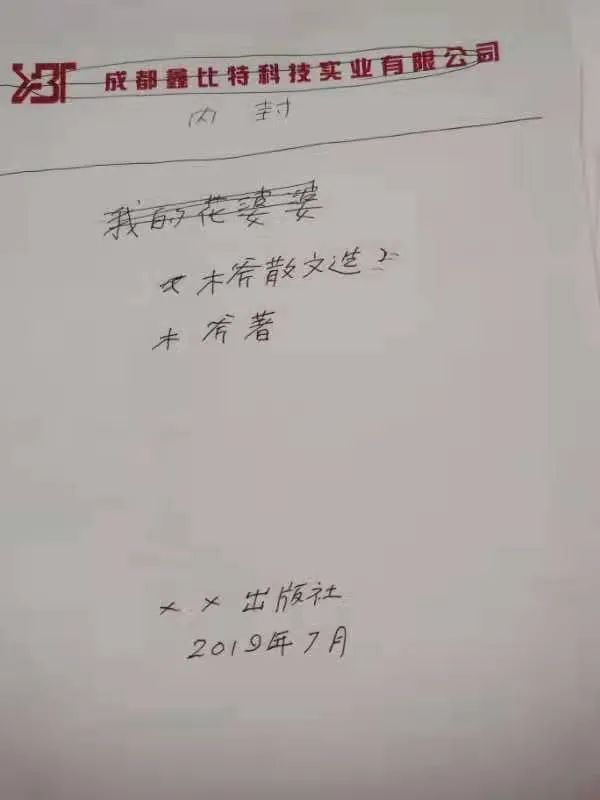 XBT 成都鑫比特科技实业有限公司
内封
我的花婆婆
《木斧散文选》
木斧著
××出版社
2019年7月